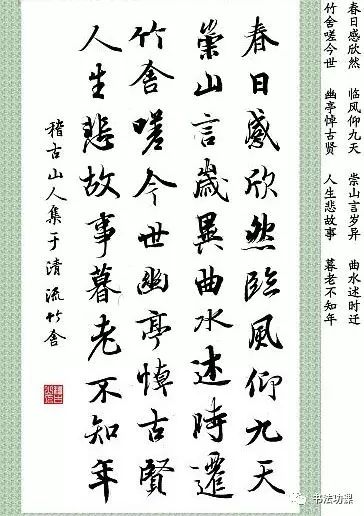 春日感欣然臨風仰九天
崇山言歲異曲水述時遷
竹舍嗟今世幽亭悼古賢
人生悲故事暮老不知年
稽古山人集于清流竹舍
春日感欣然 临风仰九天 崇山言岁异 曲水述时迁
竹舍嗟今世 幽亭悼古贤 人生悲故事 暮老不知年
书法功课